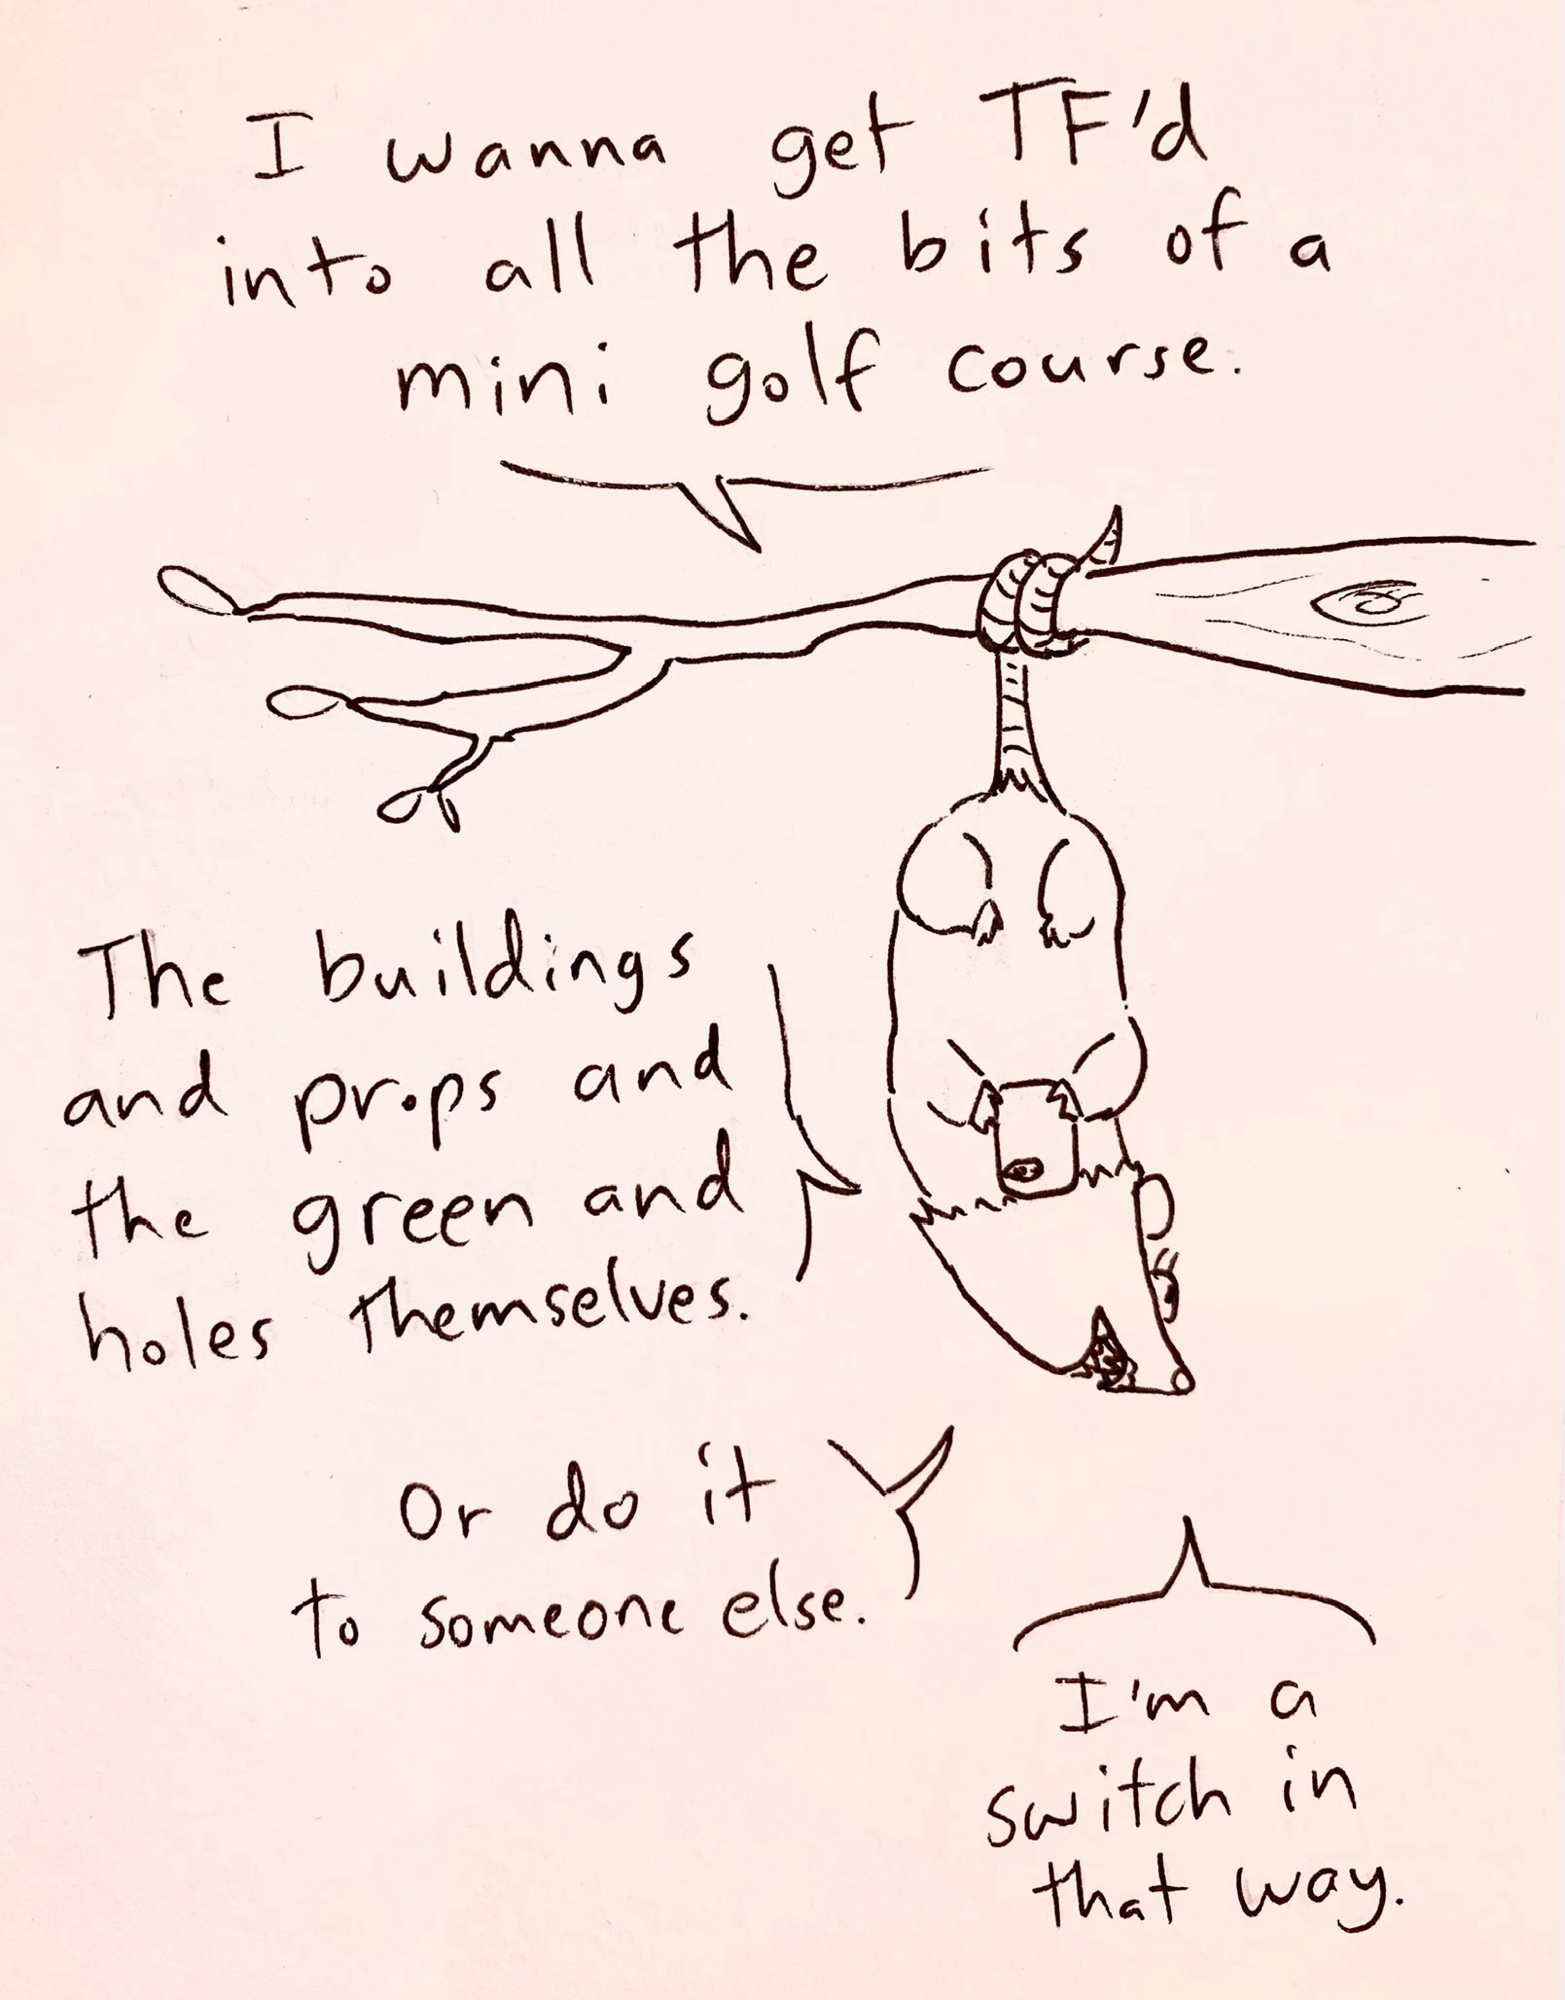 I wanna get TF'd
into all the bits of a
mini golf course.
The buildings
and props and
the green and
holes themselves.
Or do it
to someone else.
I'm a
switch in
that way.